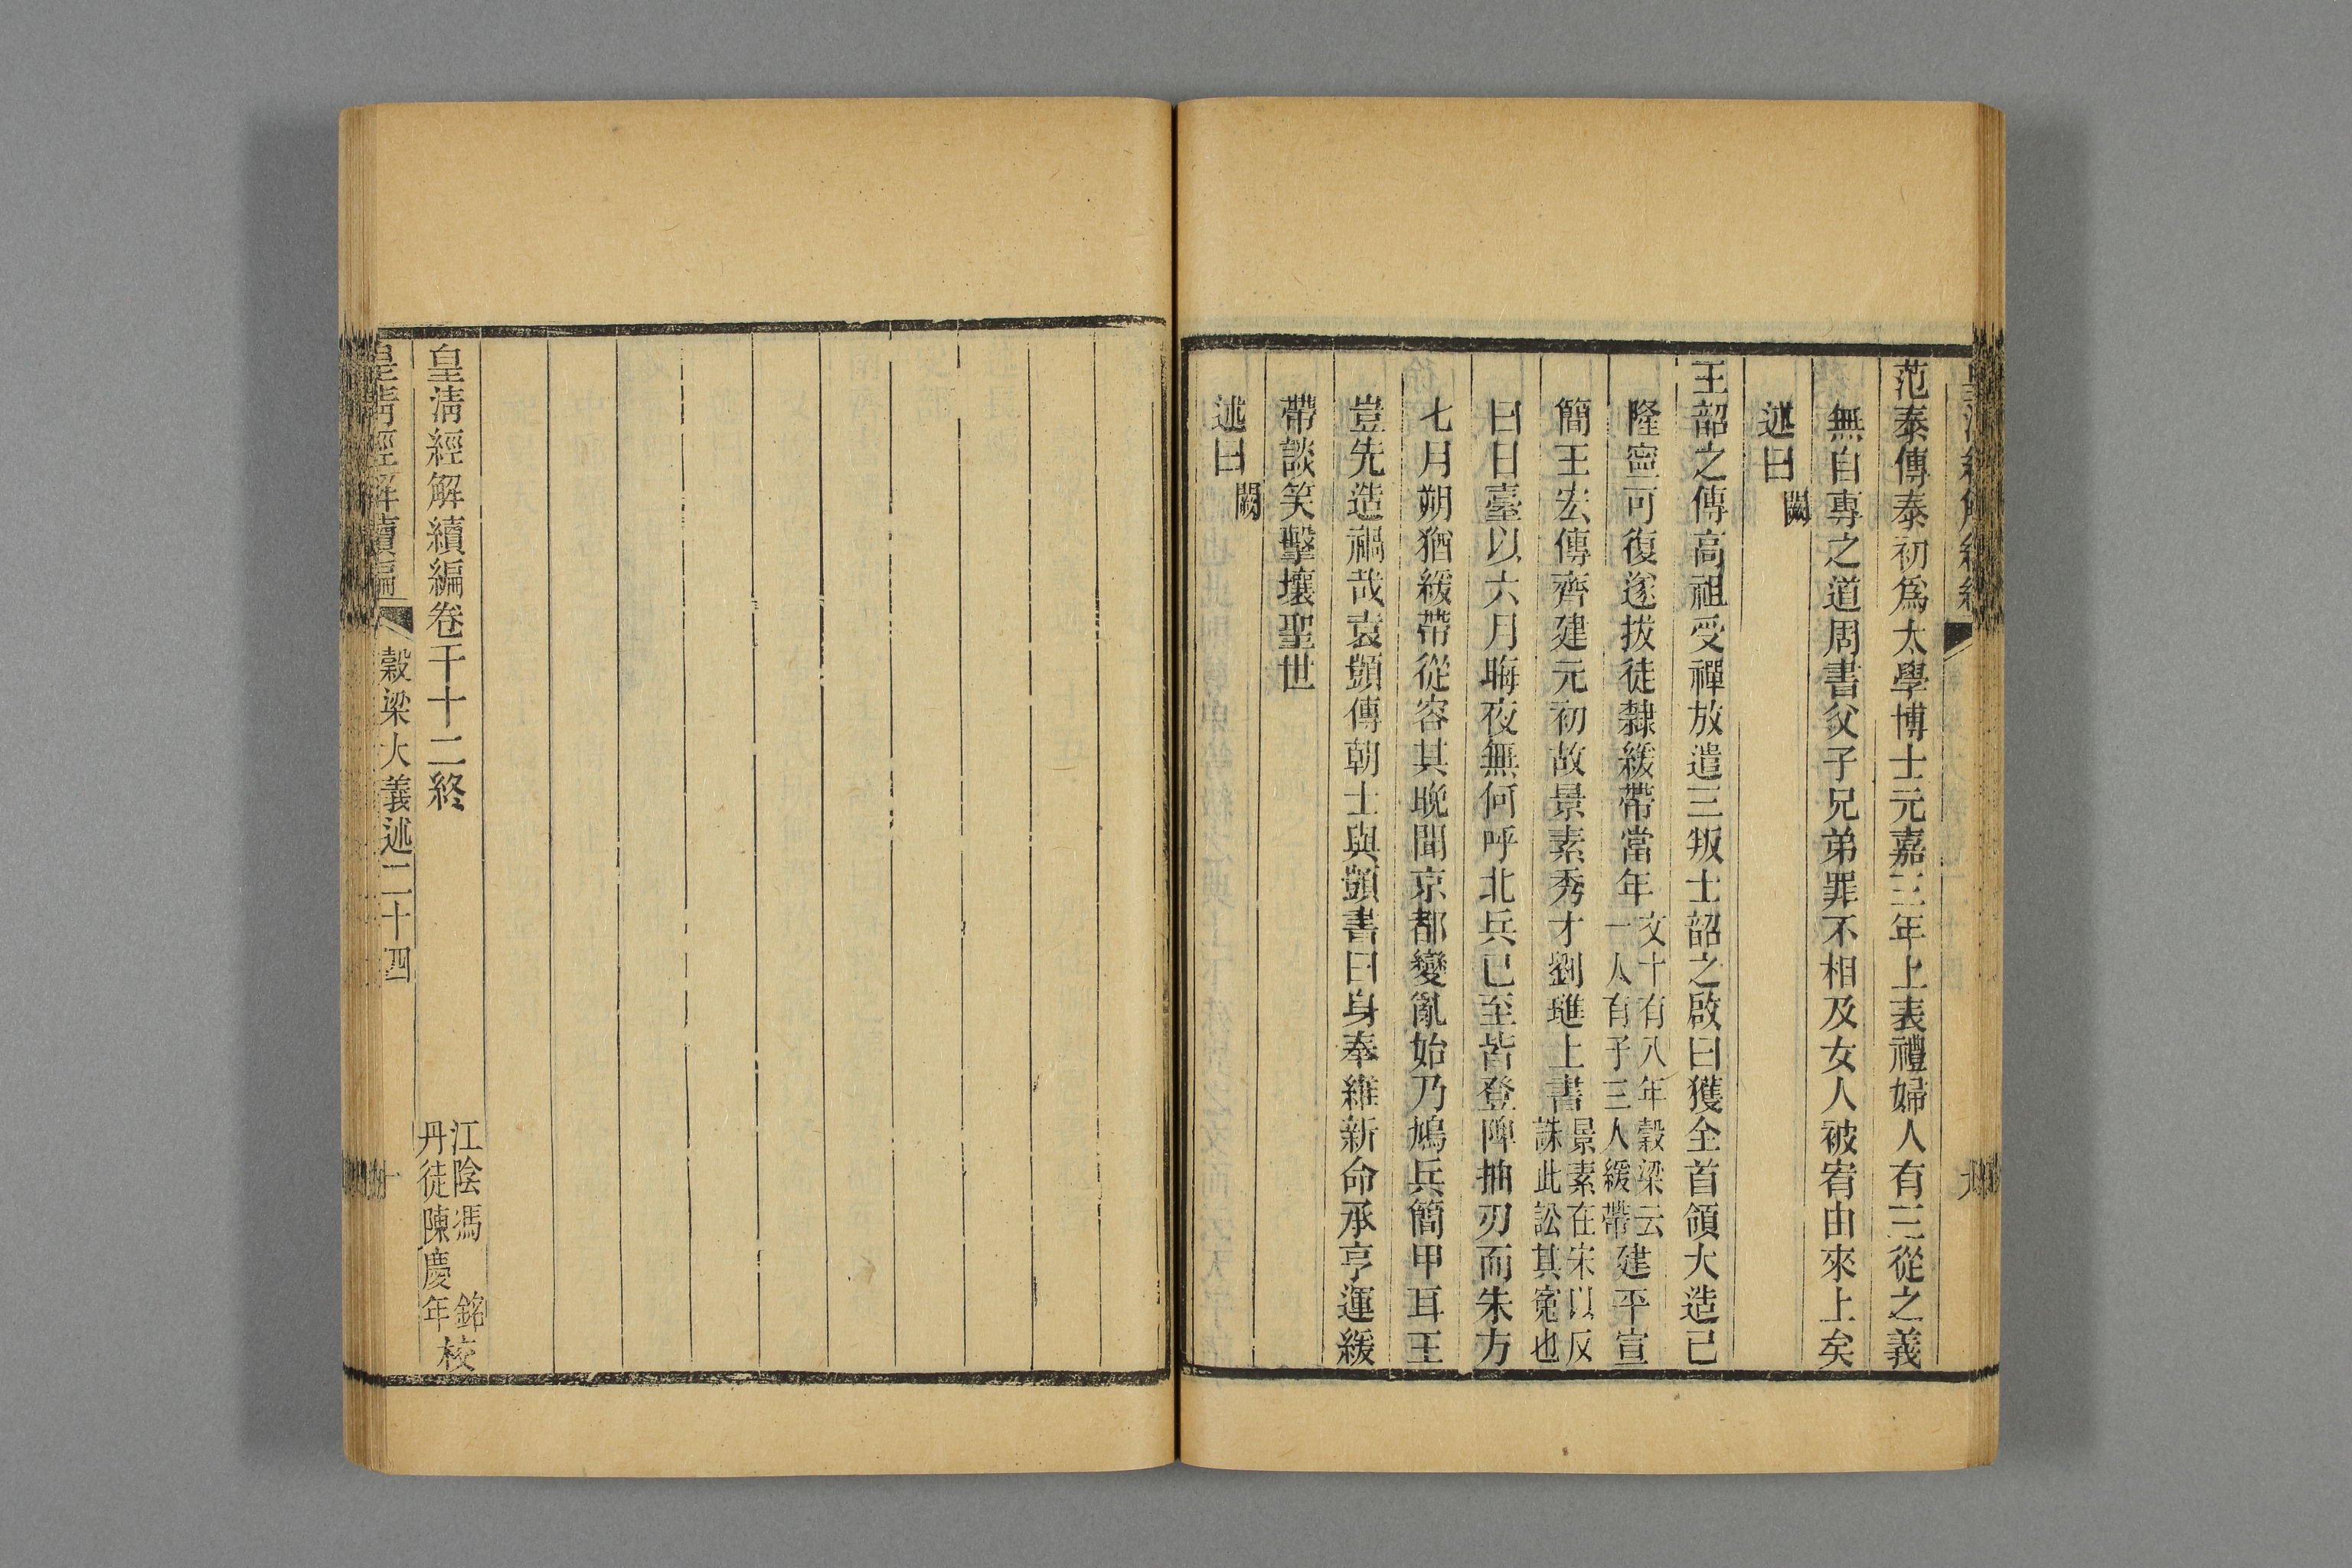 范泰傳泰初爲太學博士元嘉三年上表禮婦人有三從之義
無自專之道周書父子兄弟罪不相及女人被宥由來上矣
述曰闕
王韶之傳高祖受禪放遣三叛士韶之啟曰獲全首領大造已
隆寧可復遂拔徒隸緩帶當年文十有八年穀梁云一人有子三人緩帶建平宣
簡王宏傳齊建元初故景素秀才劉璡上書景素在宋以反誅此訟其寃也
曰日臺以六月晦夜無何呼北兵已至皆登陴抽刃而朱方
七月朔猶緩帶從容其晚聞京都變亂始乃鳩兵簡甲耳王
豈先造禍哉袁顗傳朝士與顗書曰身奉維新命承亨運緩
帶談笑擊壤聖世
述曰闕
皇淸經解續編卷千十二終
江陰馮銘
丹徒陳慶年校
皇淸經解續編 穀梁大義述二十四 十